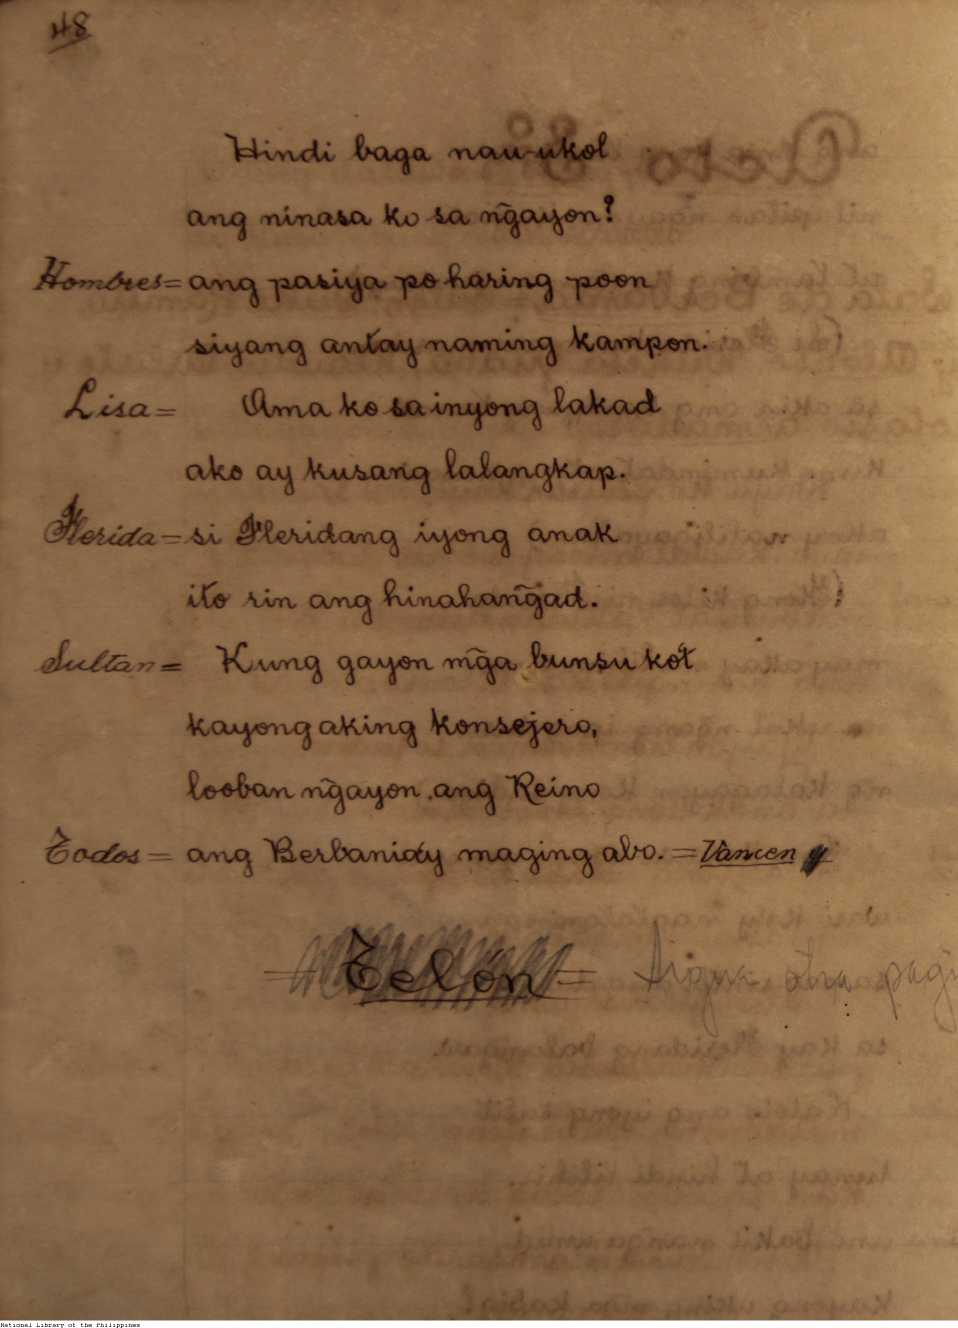 48
Hindi baga nau-ukol
ang ninasa ko sa n͠gayon?
Hombres = ang pasiya po haring poon
siyang antay naming kampon.
Lisa = Ama ko sa inyong lakad
ako ay kusang lalangkap.
Flerida = si Fleridang iyong anak
ito rin ang hinahan͠gad.
Sultan = Kung gayon m͠ga bunsu ko't
kayong aking konsejero,
looban n͠gayon ang Reino
Todos = ang Berbanidy maging abo. = Vancen y
= Telón = Sigue otra pagi
National Library of the Philippines